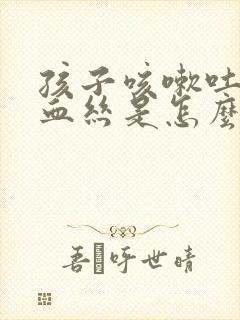 孩子咳嗽吐
血絲是怎麼
吾 呼世晴